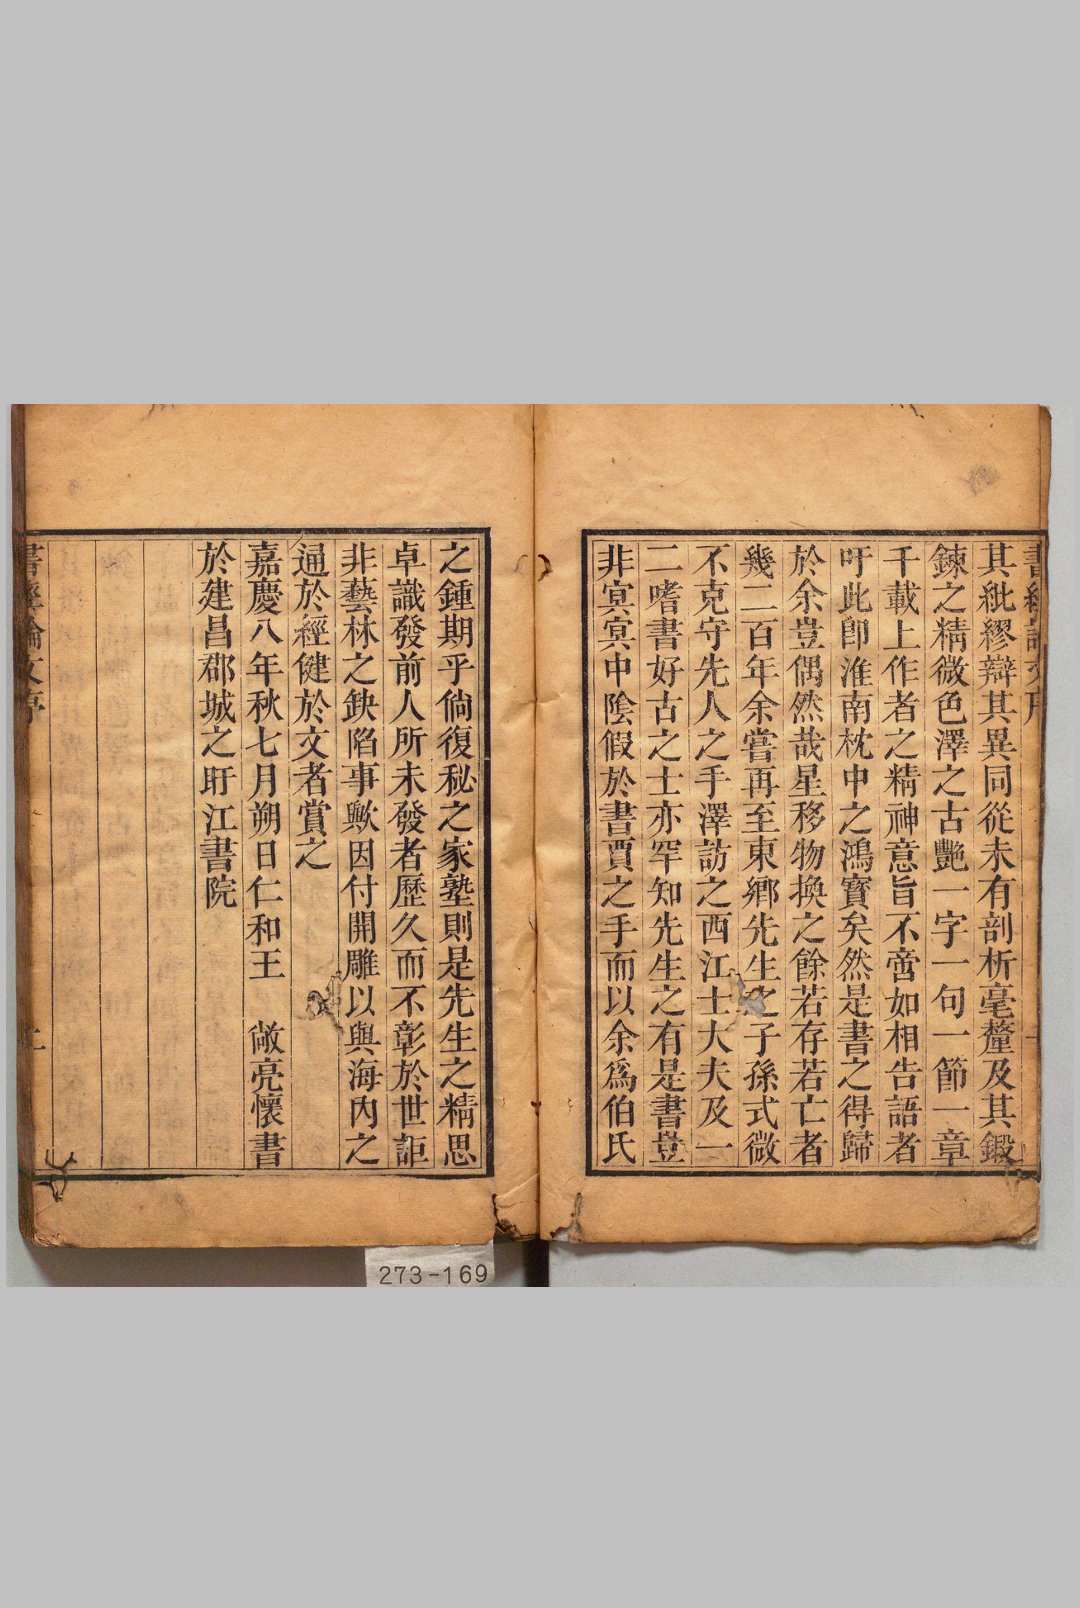 其紕繆辯其異同從未有剖析毫釐及其鍛
鍊之精微色澤之古艷一字一句一節一章
千載上作者之精神意旨不啻如相告語者
吁此卽淮南枕中之鴻寶矣然是書之得歸
於余豈偶然哉星移物換之餘若存若亡者
幾二百年余嘗再至東鄉先生之子孫式微
不克守先人之手澤訪之西江士大夫及一
二嗜書好古之士亦罕知先生之有是書豈
非冥冥中陰假於書賈之手而以余爲伯氏
之鍾期乎倘復秘之家塾則是先生之精思
卓識發前人所未發者歷久而不彰於世詎
非藝林之缺陷事歟因付開雕以與海內之
通於經健於文者賞之
嘉慶八年秋七月朔日仁和王 敞亮懷書
於建昌郡城之盱江書院
書經論文序
273-169